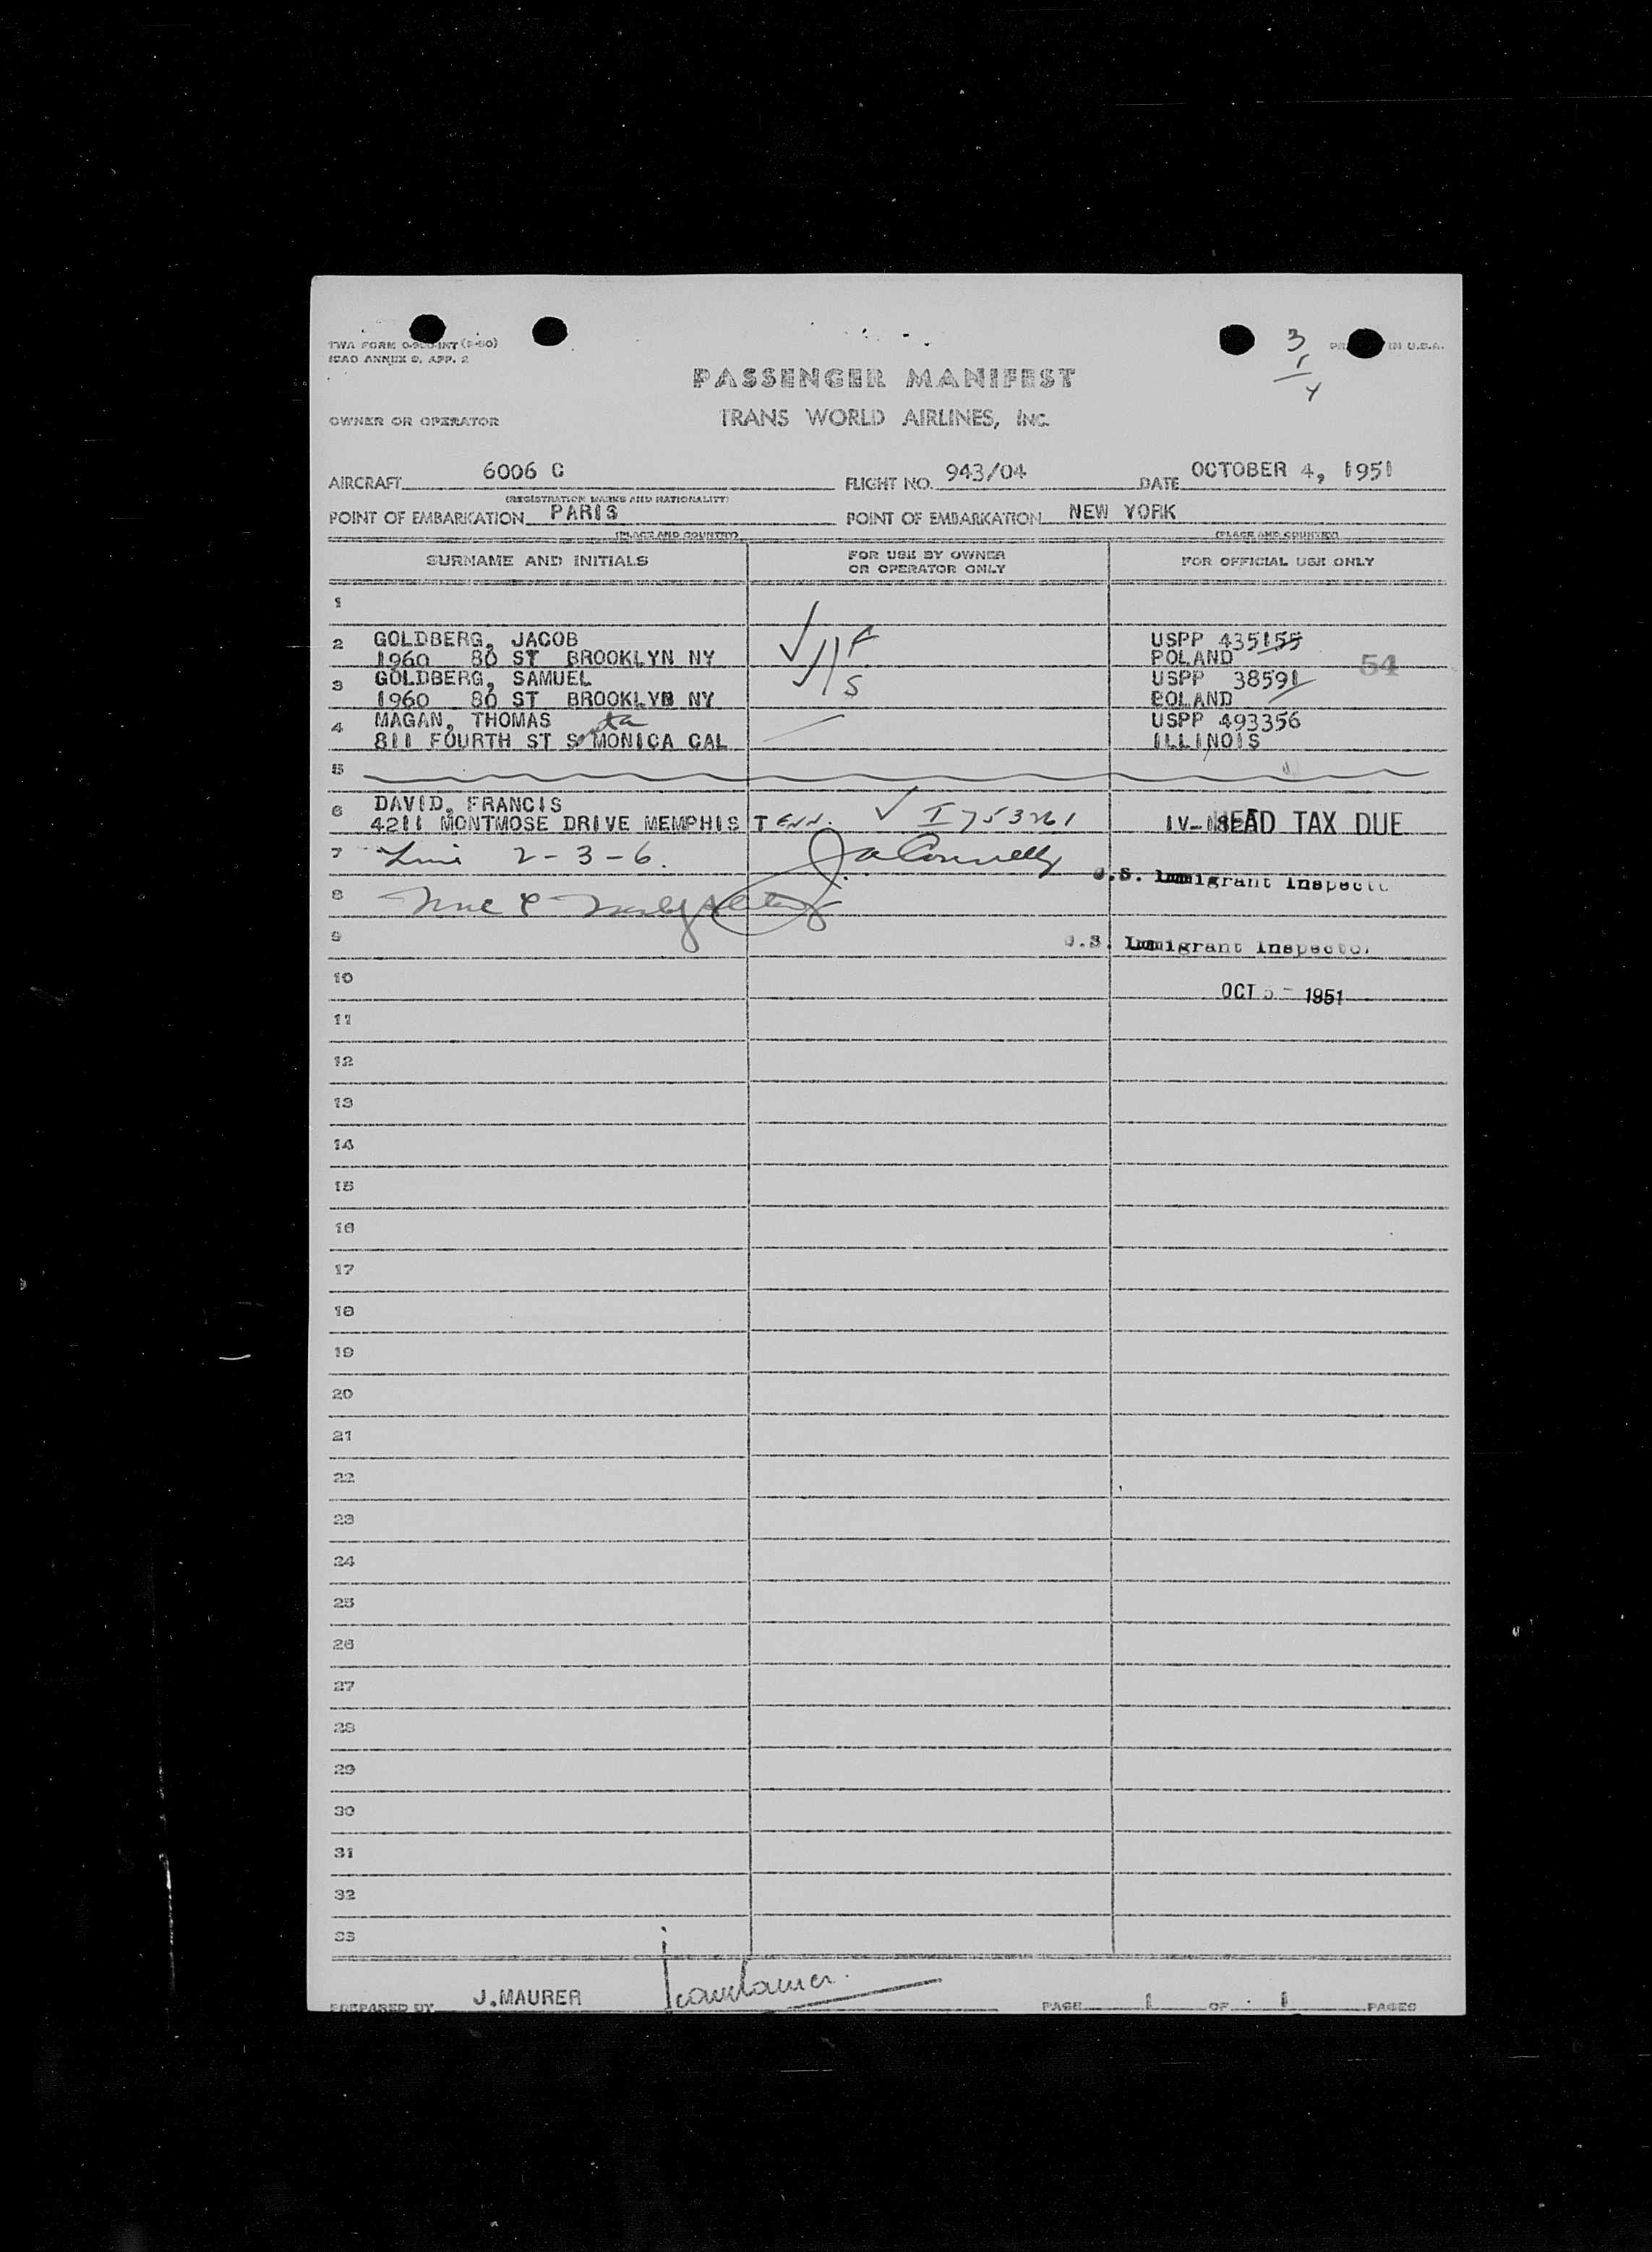 TWA FORM
ICAO ANNEX 9, APP. 2
IN U.S.A.
3
1
4
PASSENGER MANIFEST
OWNER OR OPERATOR TRANS WORLD AIRLINES, INC.
AIRCRAFT 6006 C FLIGHT NO. 943/04 DATE OCTOBER 4, 1951
(REGISTRATION MARKS AND NATIONALITY)
POINT OF EMBARKATION PARIS POINT OF EMBARKATION NEW YORK
(PLACE AND COUNTRY) (PLACE AND COUNTRY)
SURNAME AND INITIALS FOR USE BY OWNER OR OPERATOR ONLY FOR OFFICIAL USE ONLY
1
2 GOLDBERG, JACOB F USPP 435155
1960 80 ST BROOKLYN NY POLAND 54
3 GOLDBERG, SAMUEL S USPP 38591
1960 80 ST BROOKLYN NY POLAND
4 MAGAN, THOMAS USPP 493356
811 FOURTH ST Santa MONICA CAL ILLINOIS
5
6 DAVID, FRANCIS
4211 MONTMOSE DRIVE MEMPHIS TENN. ✓ I 753261 HEAD TAX DUE
7 2-3-6. Connelly
U.S. Immigrant Inspector
8
9 U.S. Immigrant Inspector
10 OCT 5 - 1951
11
12
13
14
15
16
17
18
19
20
21
22
23
24
25
26
27
28
29
30
31
32
33
PREPARED BY J.MAURER PAGE 1 OF 1 PAGES